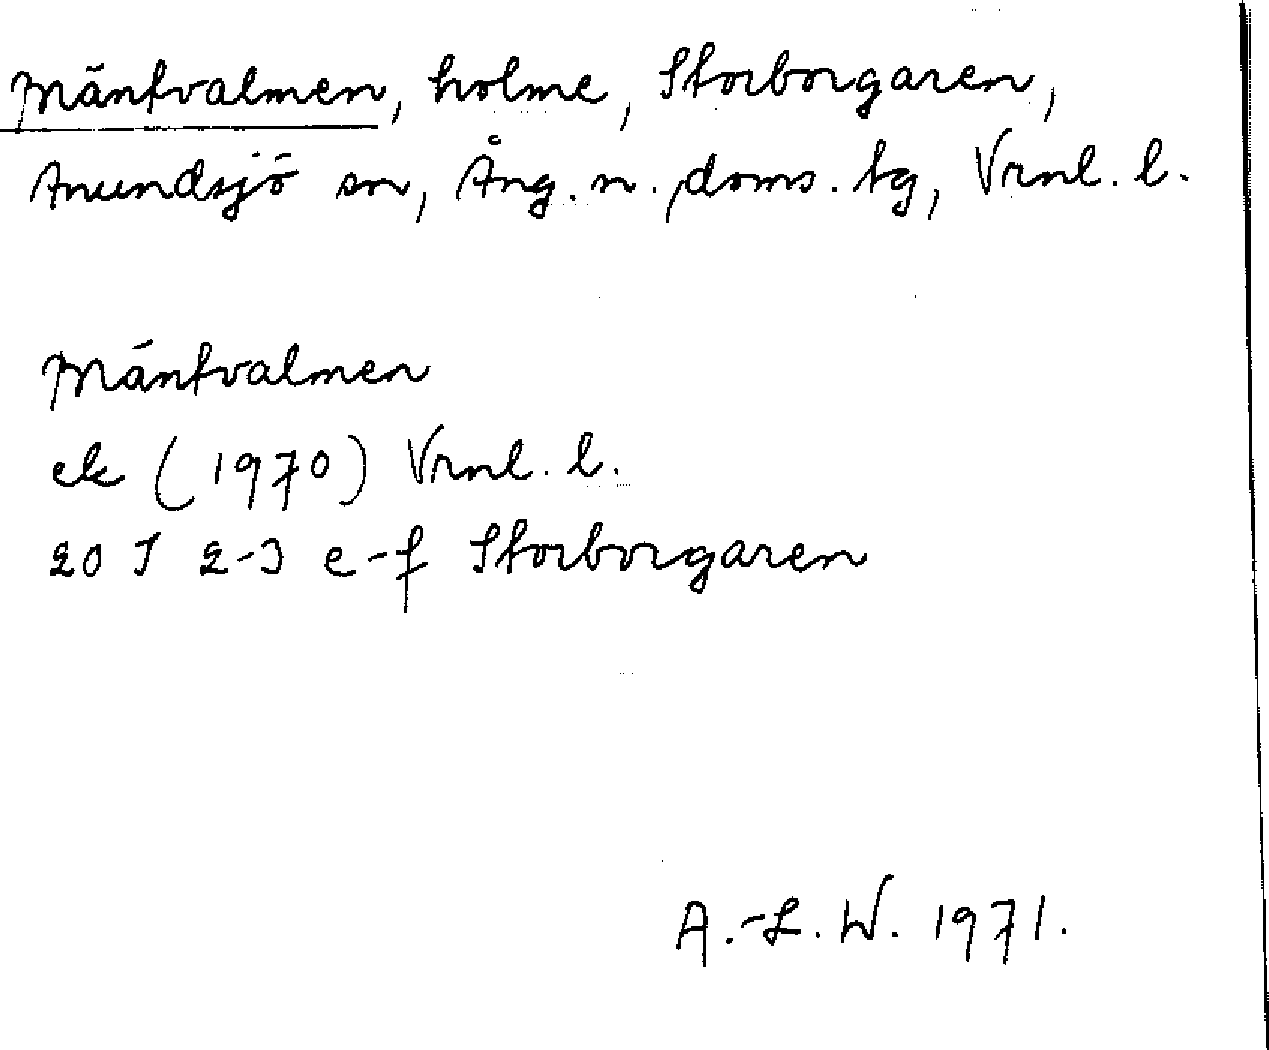 Mäntvalmen, holme, Storborgaren,
Anundsjö sn, Ång. n. doms. tg, Vrnl. l.
Mäntvalmen
ek (1970) Vrnl. l.
20 J 2-3 e-f Storborgaren
A.-L. W. 1971.